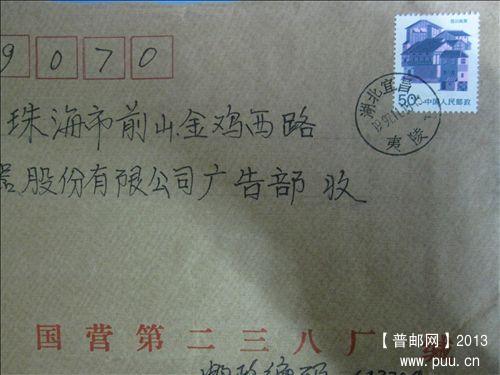 9070
四川民居
50分
中国人民邮政
湖北宜昌
夷陵
珠海市前山金鸡西路
器股份有限公司广告部 收
国营第二三八厂
邮政编码
【普邮网】2013
www.puu.cn